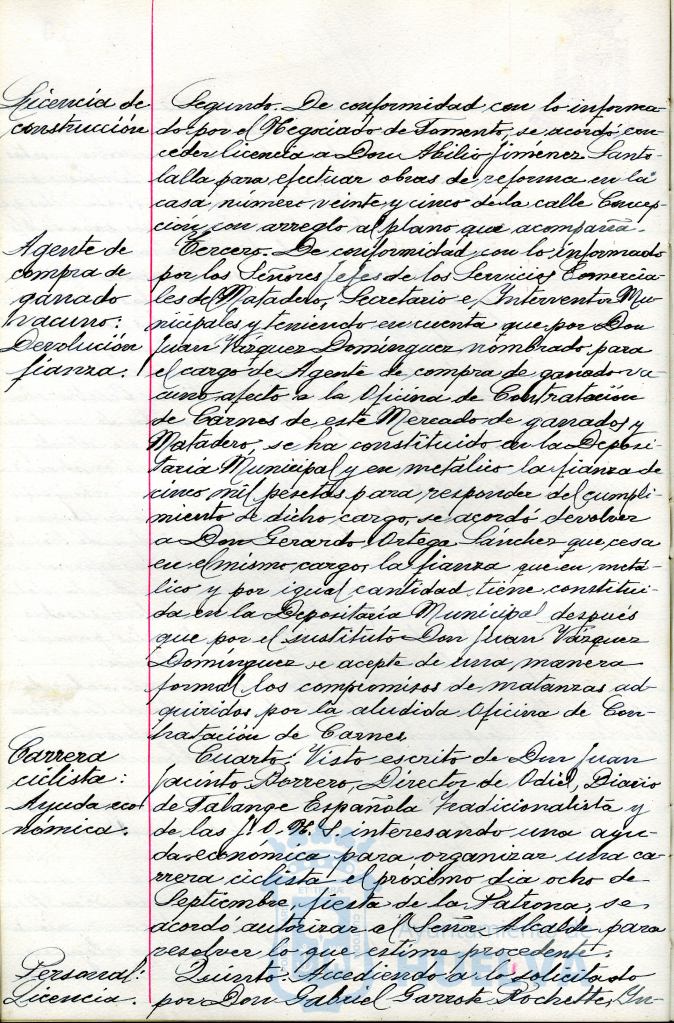 Licencia de
construcción
Segundo. De conformidad con lo informa-
do por el Negociado de Fomento, se acordó con-
ceder licencia a Don Abilio Jiménez Santo-
lalla para efectuar obras de reforma en la
casa número veinte y cinco de la calle Concep-
ción con arreglo al plano que acompaña.
Agente de
compra de
ganado
vacuno:
Devolución
fianza.
Tercero. De conformidad con lo informado
por los Señores Jefes de los Servicios Comercia-
les del Matadero, Secretario e Interventor Mu-
nicipales y teniendo en cuenta que por Don
Juan Vázquez Domínguez nombrado para
el cargo de Agente de compra de ganado va-
cuno afecto a la Oficina de Contratación
de Carnes de este Mercado de ganados y
Matadero, se ha constituido en la Deposi-
taría Municipal y en metálico la fianza de
cinco mil pesetas para responder del cumpli-
miento de dicho cargo, se acordó devolver
a Don Gerardo Ortega Sánchez que cesa
en el mismo cargo, la fianza que en metá-
lico y por igual cantidad tiene constitui-
da en la Depositaría Municipal después
que por el sustituto Don Juan Vázquez
Domínguez se acepte de una manera
formal los compromisos de matanzas ad-
quiridos por la aludida Oficina de Con-
tratación de Carnes.
Carrera
ciclista:
Ayuda eco-
nómica.
Cuarto. Visto escrito de Don Juan
Jacinto Borrero, Director de Odiel, Diario
de Falange Española Tradicionalista y
de las J. O. N. S. interesando una ayu-
da económica para organizar una ca-
rrera ciclista el próximo día ocho de
Septiembre, fiesta de la Patrona, se
acordó autorizar al Señor Alcalde para
resolver lo que estime procedente.
Personal:
Licencia.
Quinto. Accediendo a lo solicitado
por Don Gabriel Garrote Rochette, In-
Ayuntamiento
HUELVA